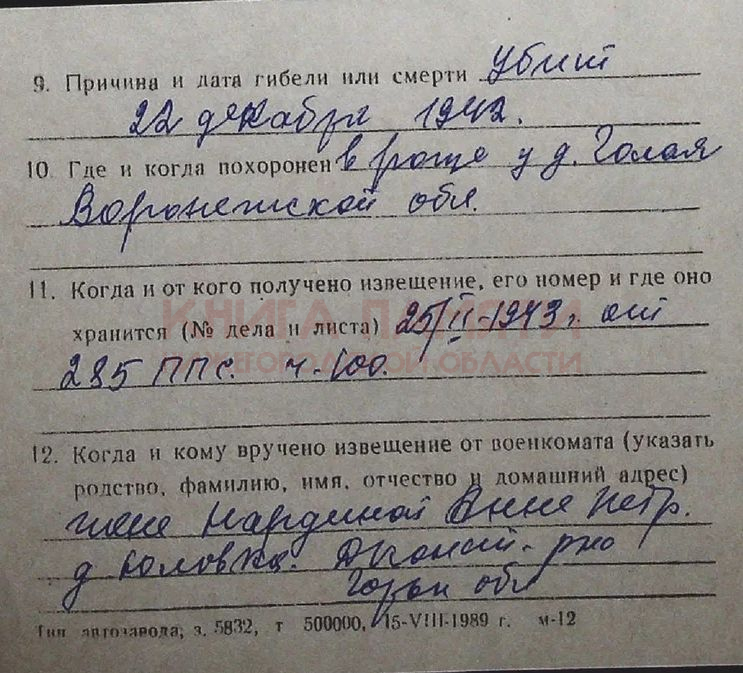 9. Причина и дата гибели или смерти убит
22 декабря 1942.
10. Где и когда похоронен в роще у д. Голая
Воронежской обл.
11. Когда и от кого получено извещение, его номер и где оно
хранится (№ дела и листа) 25/II-1943г. от
285 ППС. ч-100.
КНИГА ПАМЯТИ
НИЖЕГОРОДСКОЙ ОБЛАСТИ
12. Когда и кому вручено извещение от военкомата (указать
родство, фамилию, имя, отчество и домашний адрес)
жене Мардиной Анне Петр.
д
Горьк обл
Тип. автозавода, з. 5832, т 500000, 15-VIII-1989 г. м-12